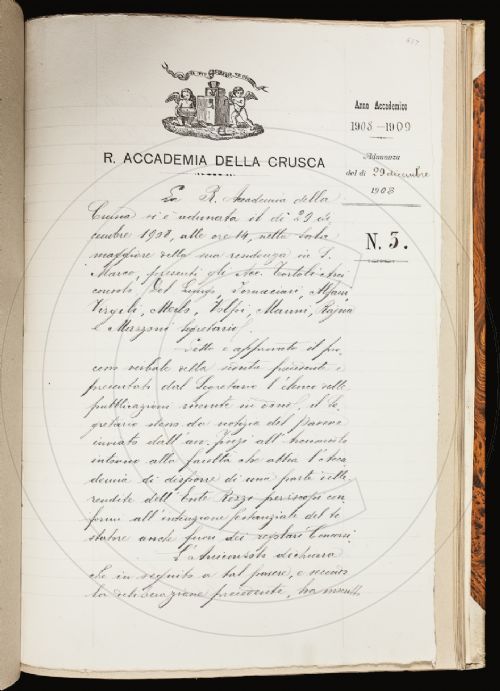 Anno Accademico
1908-1909
Adunanza
del dì 29 dicembre
1908
N. 3.
R. ACCADEMIA DELLA CRUSCA
La R. Accademia della
Crusca si è adunata il dì 29 di-
cembre 1908, alle ore 14, nella sala
maggiore della sua residenza in S.
Marco, presenti gli Acc. Tortoli Arci-
consolo, Del Lungo, Tornaciari, Alfani
Vergeli, Merlo, Volpi, Mazzoni, Rajna
e Mazzoni Segretario.
Letto e approvato il pro-
cesso verbale della seduta precedente e
presentato dal Segretario l'elenco delle
pubblicazioni ricevute in dono, il Se-
gretario stesso dà notizia del parere
inviato dall'avv. all'
intorno alla facoltà che abbia l'Acca-
demia di disporre di una parte delle
rendite dell'Ente Rezzi per iscopi con-
formi all'intenzione del te-
statore anche fuori dei regolari Concorsi.
L'Arciconsolo dichiara
che in seguito a tal parere, e secondo
la deliberazione precedente, ha